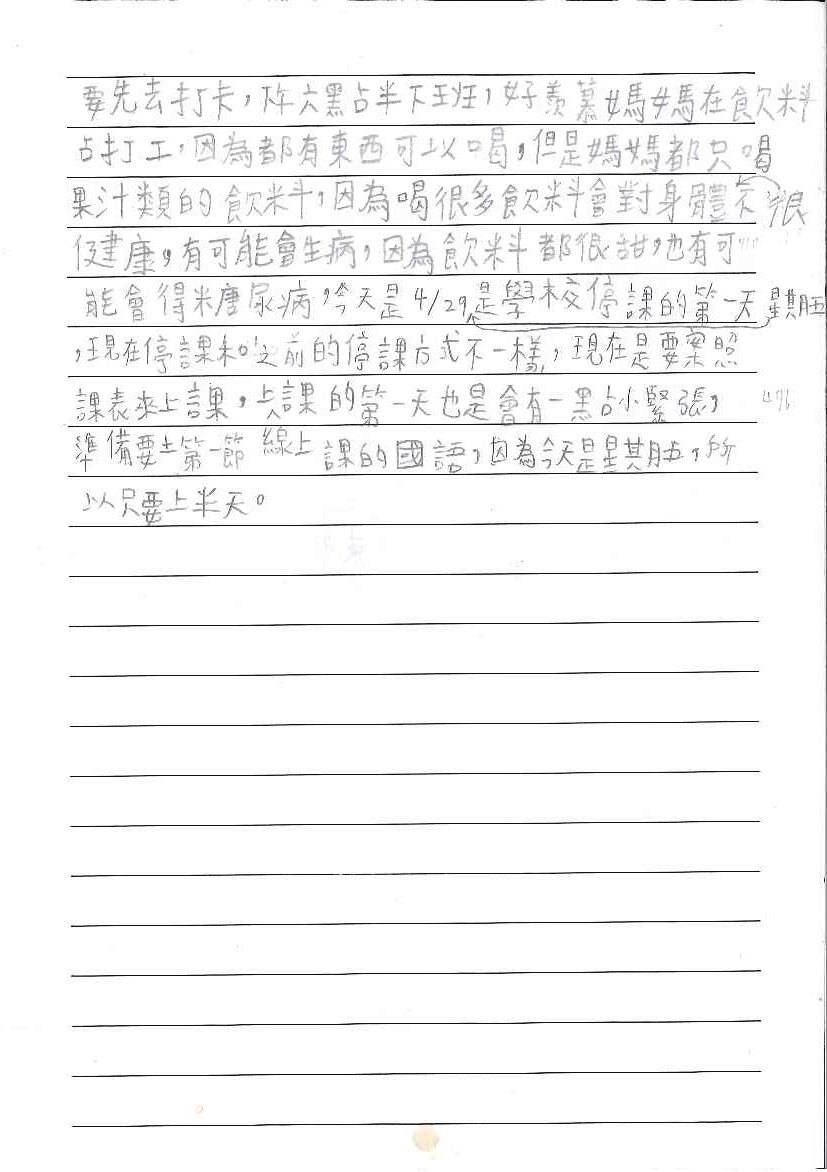 要先去打卡，下午六點半下班，好羨慕媽媽在飲料
占打工，因為都有東西可以喝，但是媽媽都只喝
果汁類的飲料，因為喝很多飲料會對身體很不
健康，有可能會生病，因為飲料都很甜，也有可
能會得糖尿病，今天是4/29星期五是學校停課的第一天
，現在停課和之前的停課方式不一樣，現在是要案照
課表來上課，上課的第一天也是會有一點小緊張，
準備要上第一節線上課的國語，因為今天是星期五，所
以只要上半天。